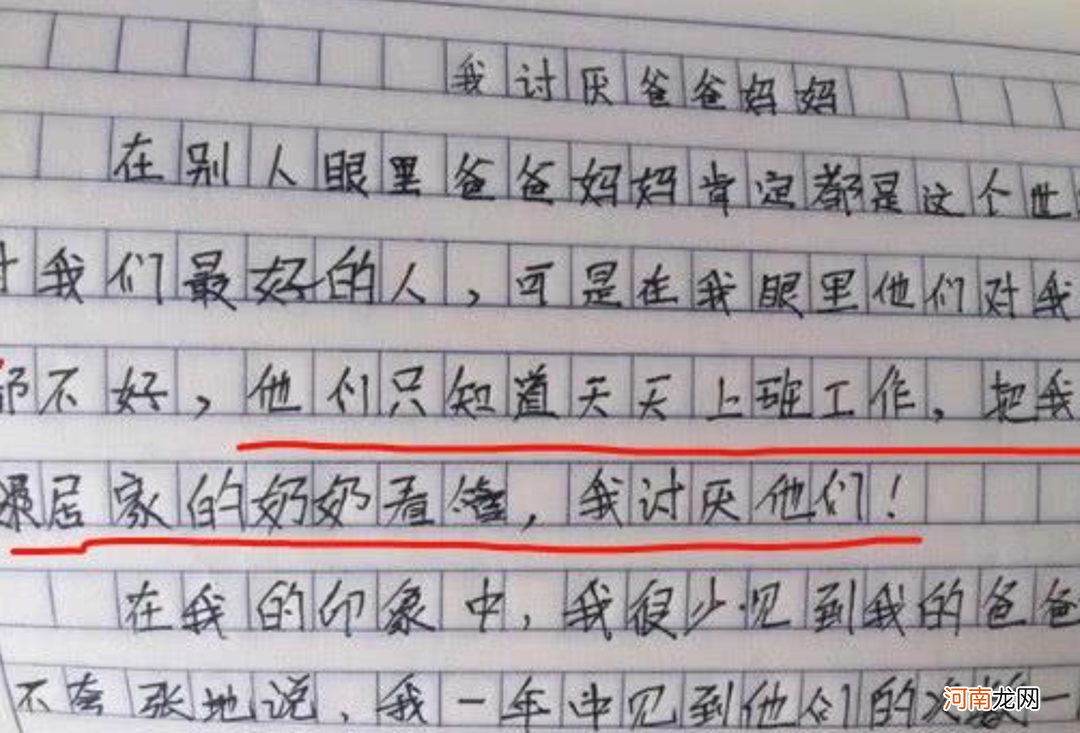 我讨厌爸爸妈妈
在别人眼里爸爸妈妈肯定都是这个世
我们最好的人，可是在我眼里他们对我
都不好，他们只知道天天上班工作，把我
居家的奶奶看，我讨厌他们！
在我的印象中，我很少见到我的爸爸
不夸张地说，我一年中见到他们的次数一
河南龙网